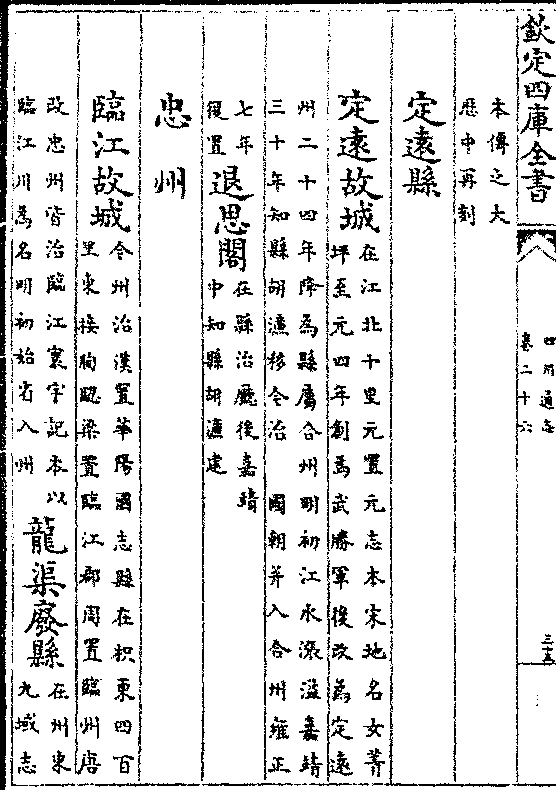 欽定四庫全書
四川通志
卷二十六
三五
本傳之大
厯中再刻
定遠縣
定遠故城
在江北十里元置元志本宋地名女菁
坪至元四年創爲武勝軍後改爲定遠
州二十四年降爲縣屬合州明初江水滾溢嘉靖
三十年知縣胡濂移今治 國朝并入合州雍正
七年
復置
退思閣
在縣治廳後嘉靖
中知縣胡濂建
忠州
臨江故城
今州治漢置華陽國志縣在枳東四百
里東接朐䏰梁置臨江郡周置臨州唐
改忠州皆治臨江寰宇記本以
臨江川爲名明初始省入州
龍渠廢縣
在州東
九域志